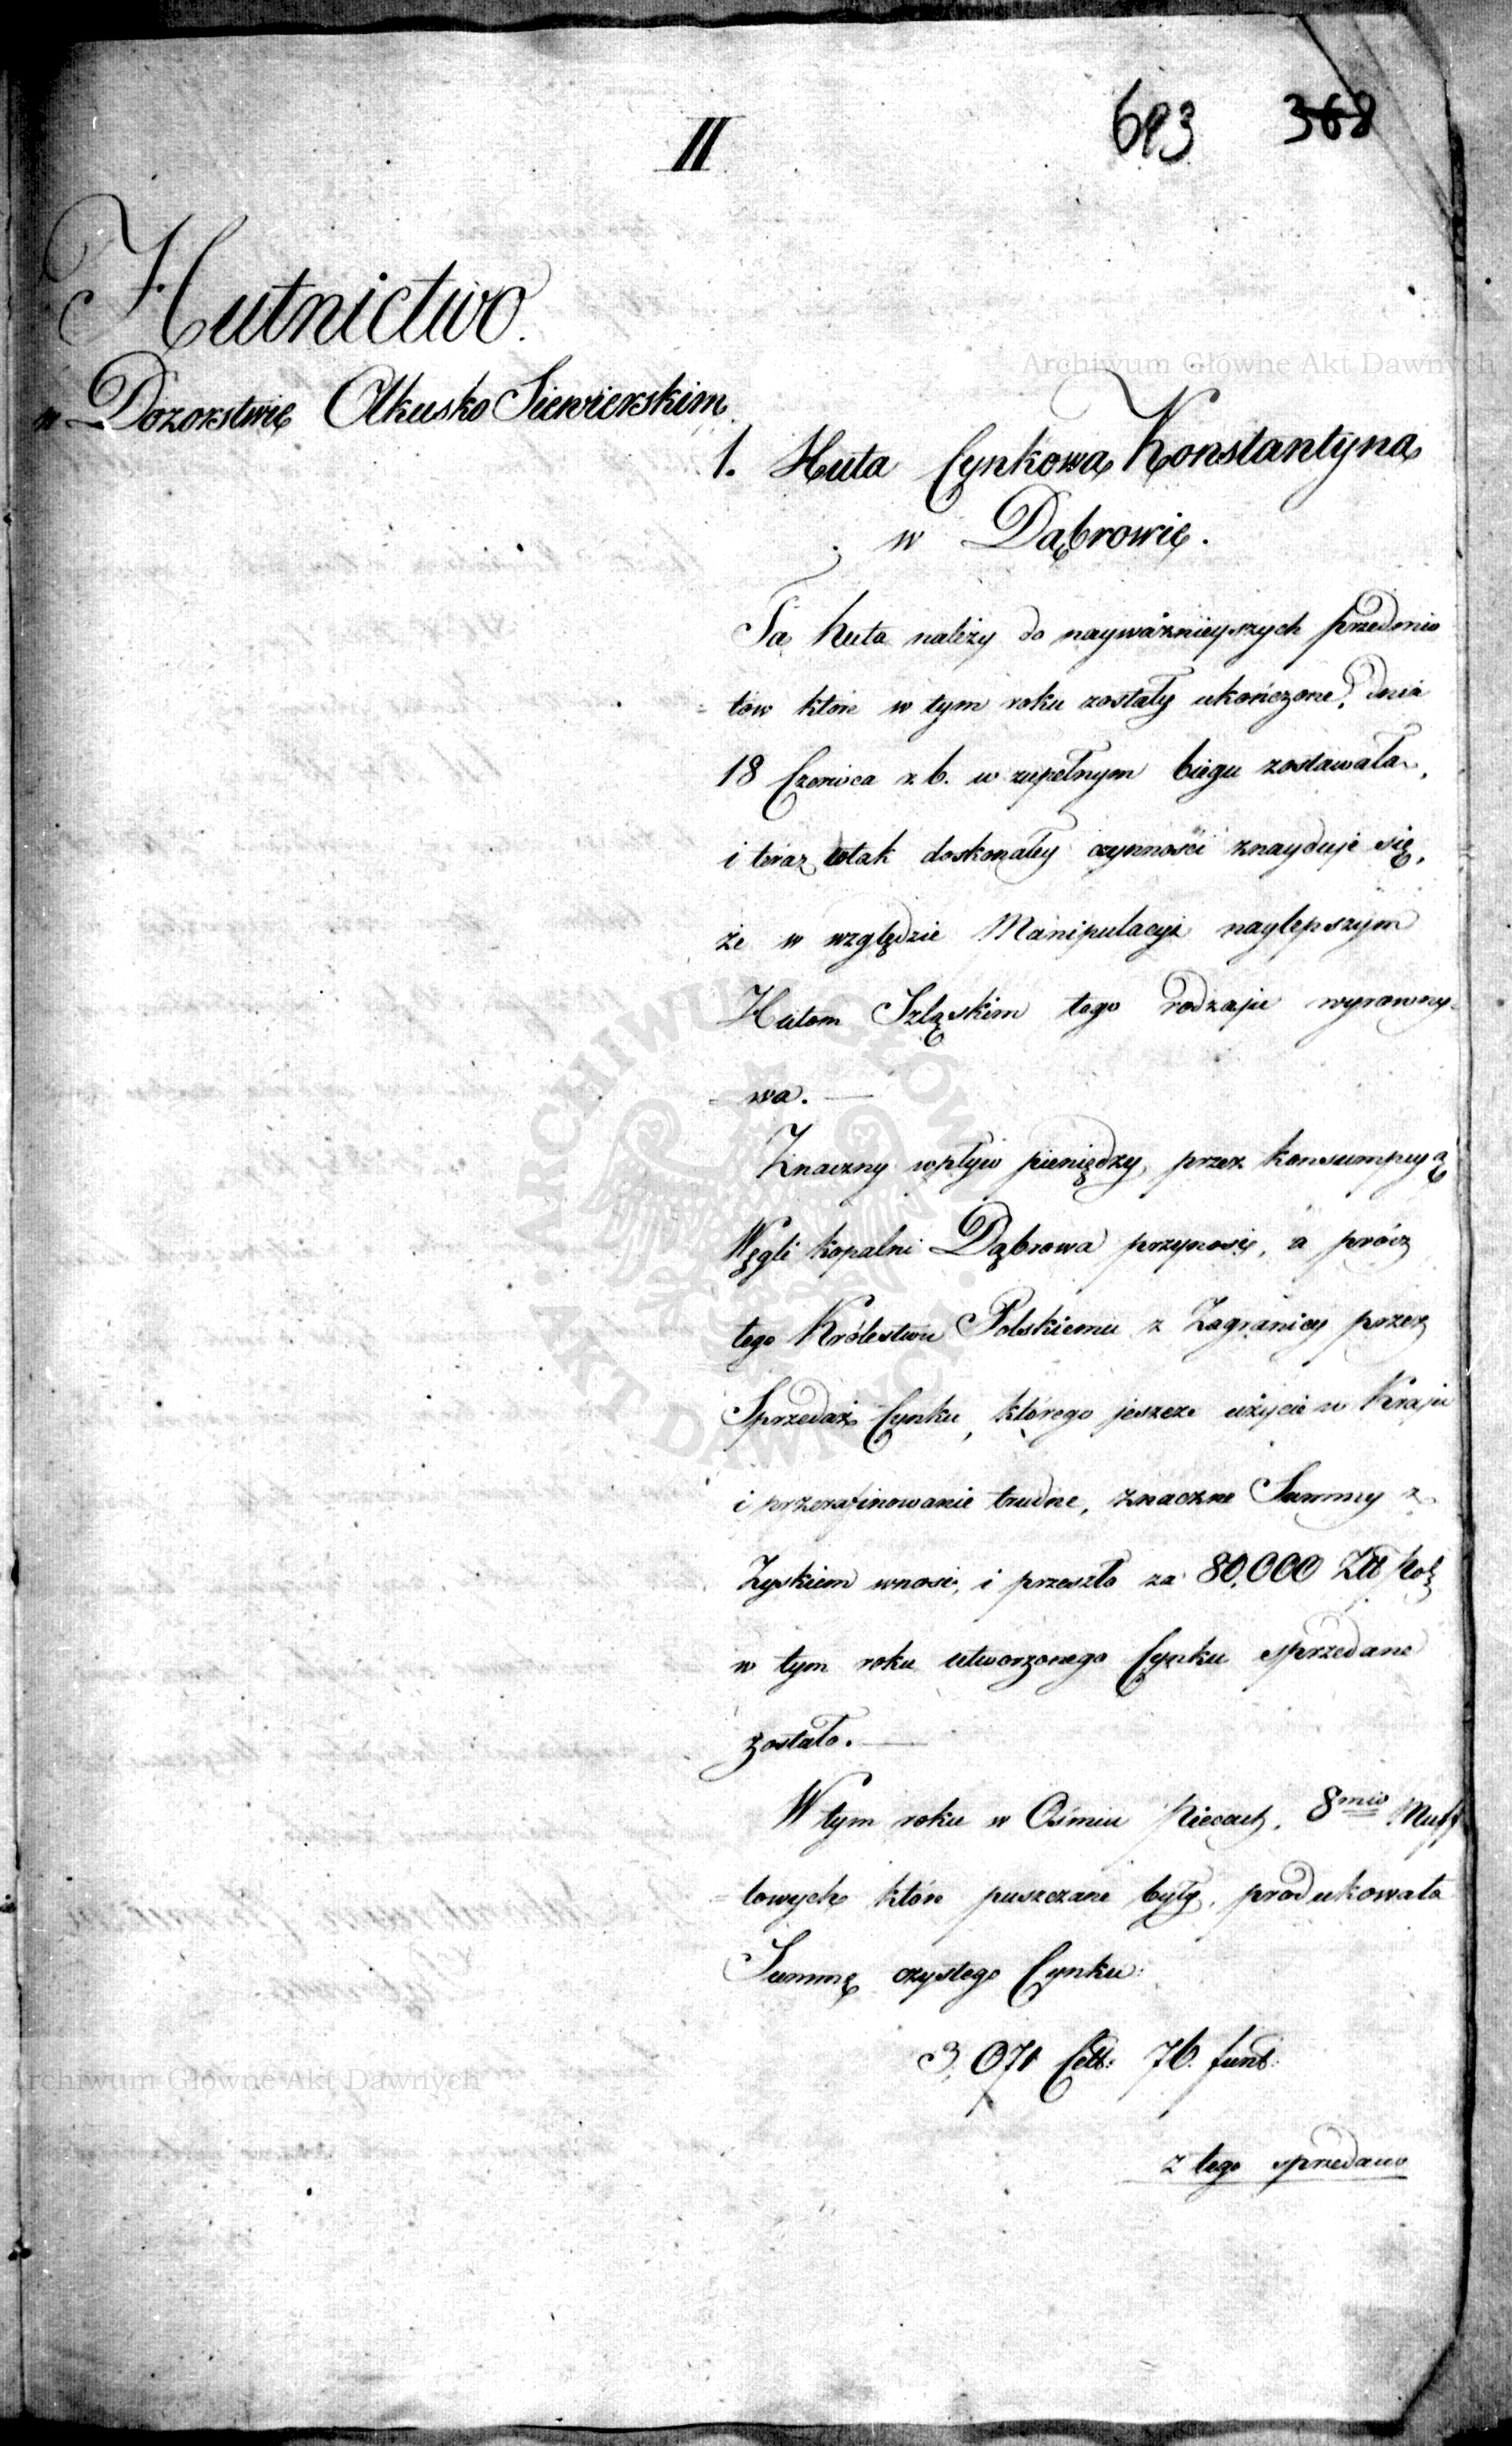 II
693 368
Hutnictwo.
w Dozorstwie Olkusko Siewierskim
1. Huta Cynkowa Konstantyna
w Dąbrowie.
Ta huta należy do nayważnieyszych przedmio
tow które w tym roku zostały ukończone, dnia
18 Czerwca r. b. w zupełnym biegu zostawała,
i teraz wtak doskonałey czynności znayduje się,
że w względzie Manipulacyi naylepszym
Hutom Szląskim tego rodzaju wyrowny-
wa. —
Znaczny wpływ pieniędzy, przez konsumpcyą
Węgli kopalni Dąbrowa przynosi, a prócz
tego Królestwu Polskiemu z Zagranicy przez
Sprzedaż Cynku, którego jeszcze użycie w Kraju
i przerafinowanie trudne, znaczne Summy z
Zyskiem wnosi, i przeszło za 80,000 Złt Pol:
w tym roku utworzonego Cynku sprzedane
zostało. —
W tym roku w Ośmiu Piecach, 8mio Muff
lowych które puszczane były, produkowała
Summę czystego Cynku:
3,071 Cett: 76. funt:
z tego sprzedano
Archiwum Główne Akt Dawnych
ARCHIWUM GŁÓWNE AKT DAWNYCH
Archiwum Główne Akt Dawnych